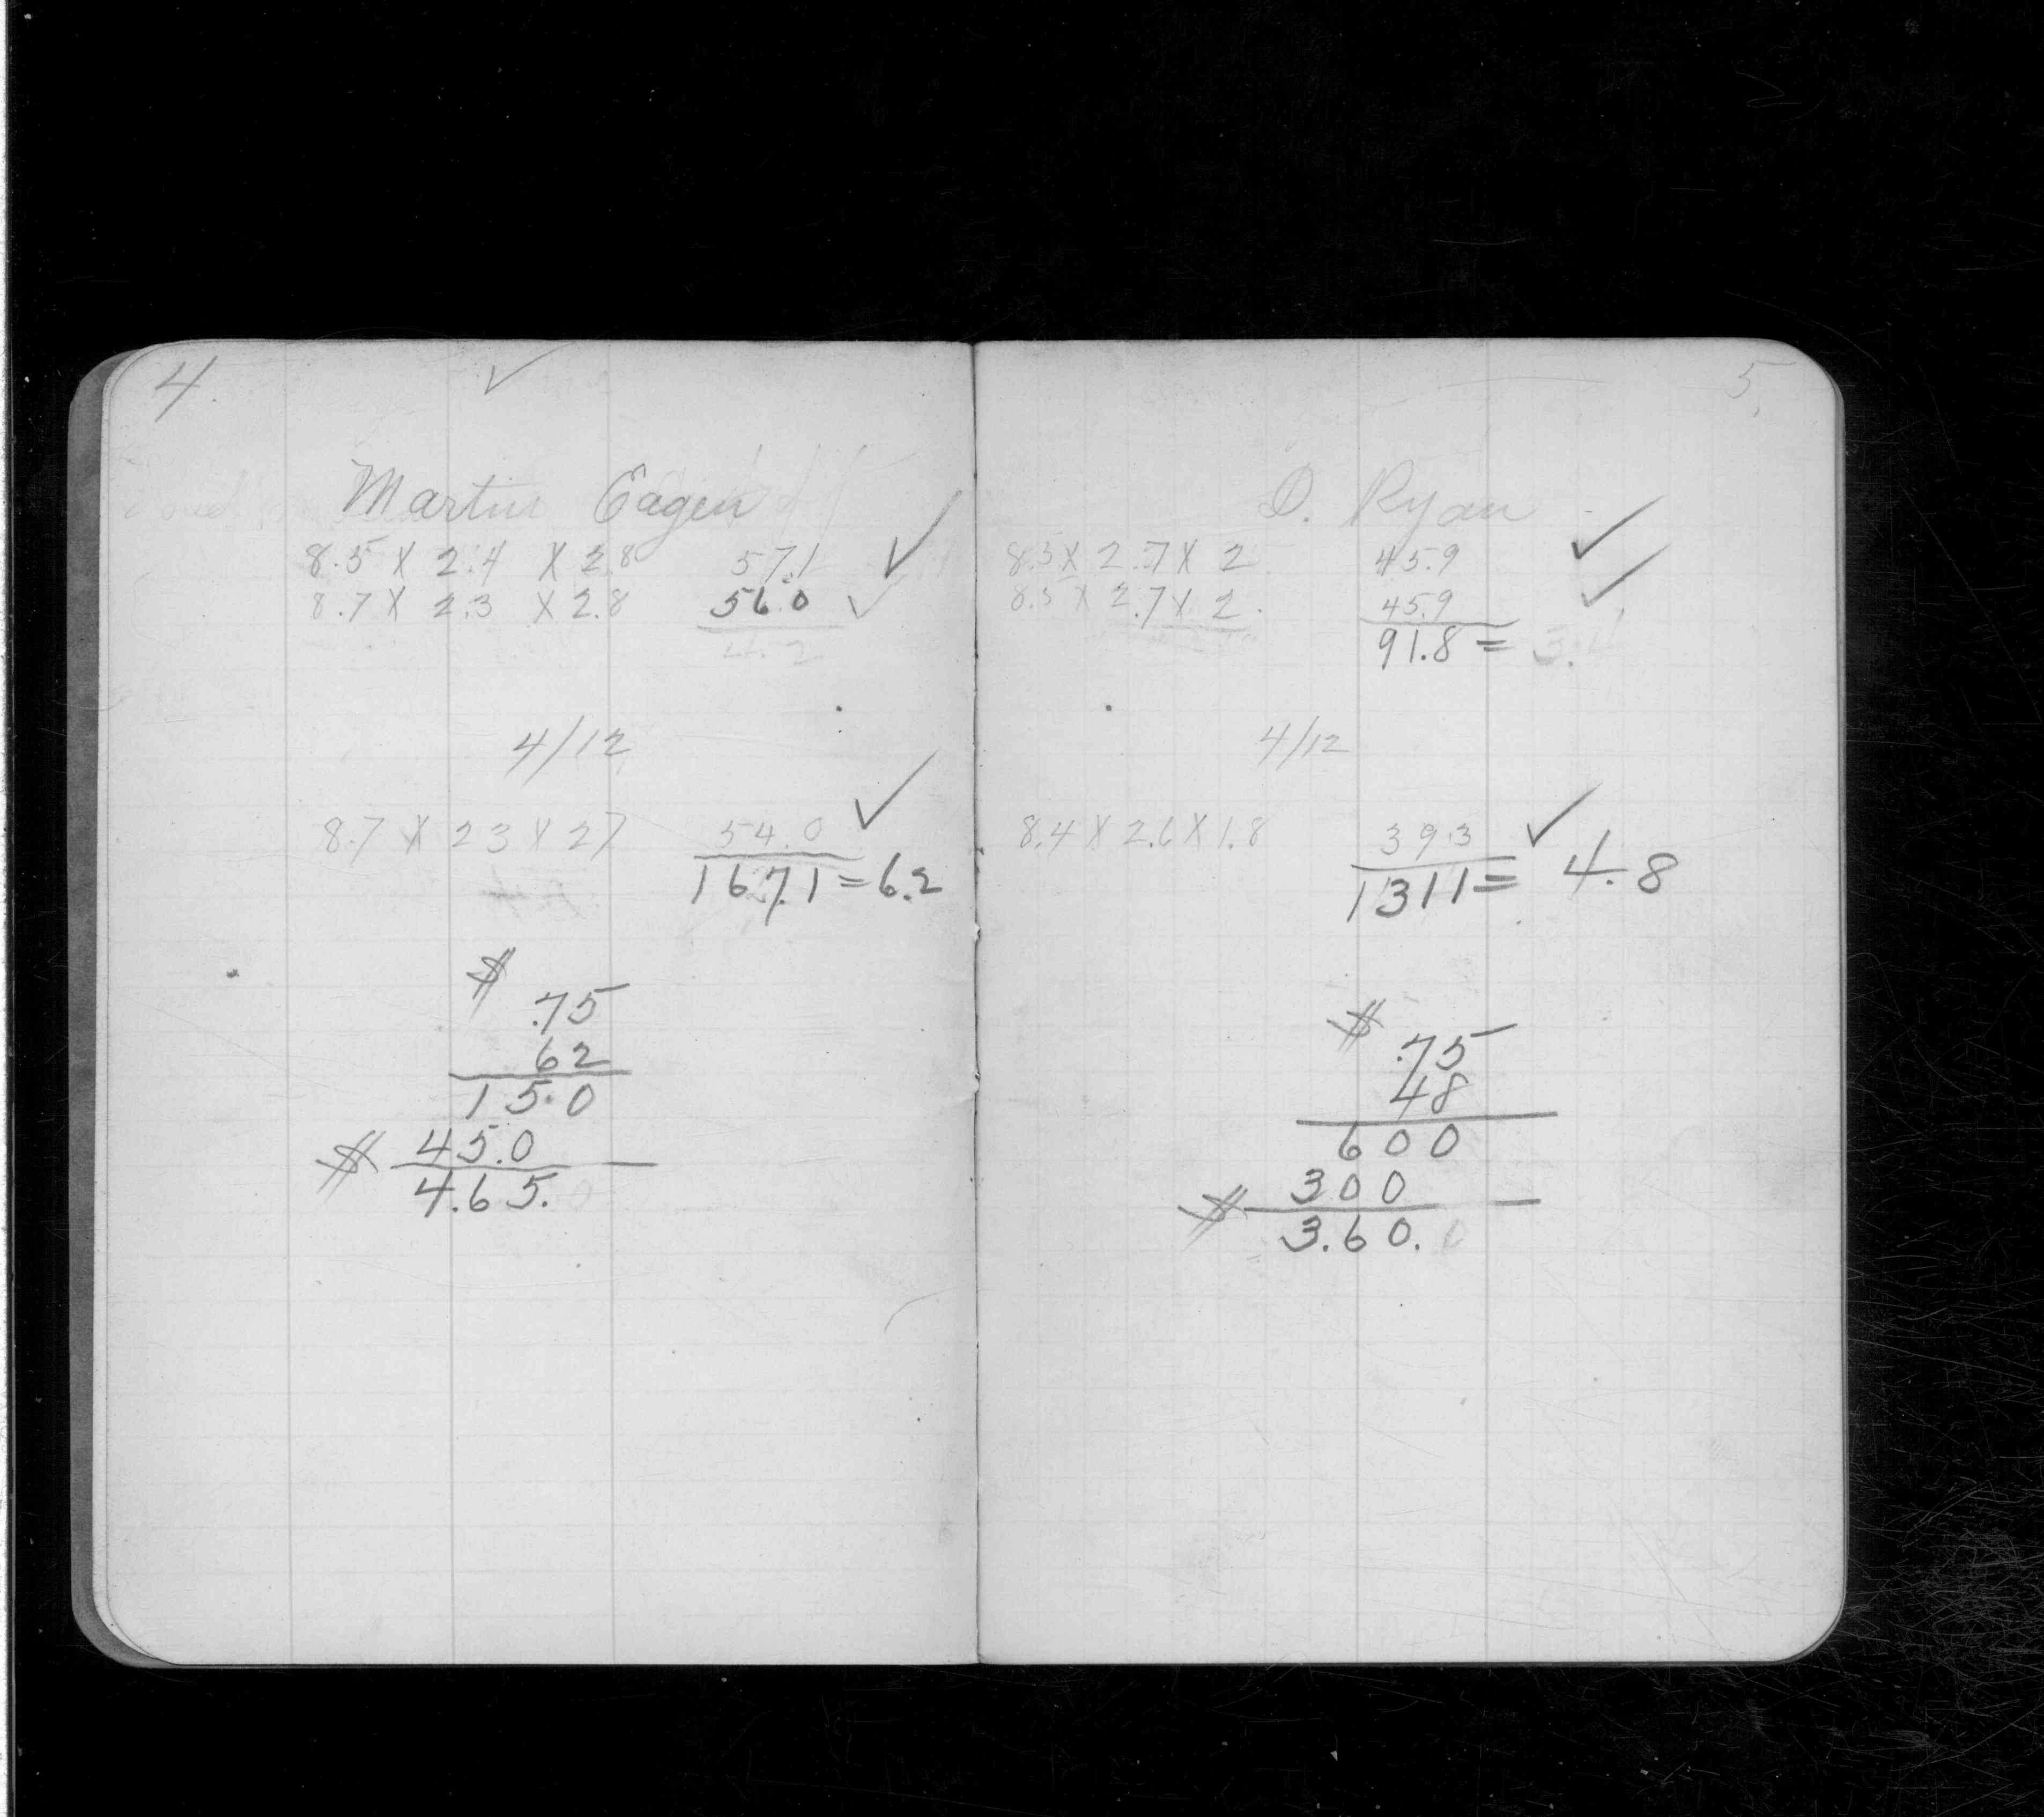 4.
✓
Martin Eagen
8.5 X 2.4 X 2.8 57.1 ✓
8.7 X 2.3 X 2.8 56.0 ✓
4.2
4/12
8.7 X 23 X 27 54.0 ✓
167.1 = 6.2
$
.75
62
15.0
45.0
$ 4.65.0
5.
D. Ryan
8.5 X 2.7 X 2 45.9 ✓
8.5 X 2.7 X 2. 45.9 ✓
91.8 = 3.4
4/12
8.4 X 2.6 X 1.8 39.3 ✓
1311 = 4.8
$
.75
48
600
300
$ 3.60.0